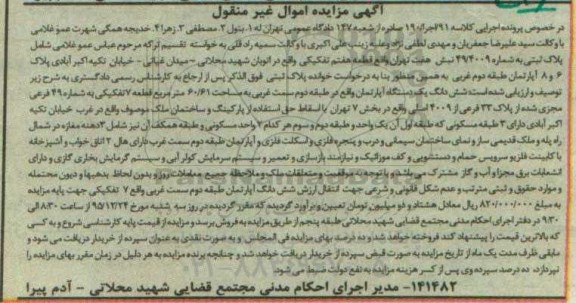 آگهی مزایده اموال غیر منقول
در خصوص پرونده اجرایی کلاسه ۹۱اجرا۱۹۰ صادره از شعبه ۱۴۷ دادگاه عمومی تهران له ۱. بتول ۲. مصطفی ۳. زهرا ۴. خدیجه همگی شهرت عمو غلامی
با وکالت سید علیرضا جعفریان و مهدی لطفی نژاد وعلیه زینب علی اکبری با وکالت سمیه راد قلی به خواسته تقسیم ترکه مرحوم عباس عمو غلامی شامل
پلاک ثبتی به شماره ۴۹/۴۰۰۹ نبش هفت تهران واقع قطعه هفتم تفکیکی واقع در اتوبان شهید محلاتی - میدان غیاثی - خیابان تکیه اکبر آبادی پلاک
۶ و ۸ آپارتمان طبقه دوم غربی به همین منظور بنا به درخواست خوانده پلاک ثبتی فوق الذکر پس از ارجاع به کارشناس رسمی دادگستری به شرح زیر
توصیف و ارزیابی شده است شش دانگ یک دستگاه آپارتمان واقع در طبقه دوم سمت غربی به مساحت ۶۱/۶۰ متر مربع قطعه ۷ تفکیکی به شماره ۴۹ فرعی
مجزی شده از پلاک ۳۳ فرعی از ۴۰۰۹ اصلی واقع در بخش ۷ تهران با اسقاط حق استفاده از پارکینگ و ساختمان ملک موصوف واقع در غرب خیابان تکیه
اکبر آبادی دارای ۳ طبقه مسکونی که طبقه اول آن یک واحد و طبقه دوم و سوم هر کدام ۲ واحد مسکونی و طبقه همکف آن نیز شامل ۳ دهنه مغازه در شمال
راه پله و ملک قدیمی ساز و نمای ساختمان سیمانی و درب و پنجره فلزی و اسکلت فلزی و آپارتمان طبقه دوم سمت غرب دارای هال ۲ اتاق خواب و آشپزخانه
با کابینت فلزی سرویس حمام و دستشویی و کف موزائیک و نیازمند بازسازی و تعمیر و سیستم سرمایش کولر آبی و سیستم گرمایش بخاری گازی و دارای
انشعابات برق مجزا و آب و گاز مشترک می باشد با توجه به موقعیت و متعلقات ملک و ملاحظه جمیع معاملات بدون لحاظ بدهیها و دیون محتمله
و موارد حقوق و ثبتی مترتب و عدم شکل قانونی و شرعی جهت انتقال ارزش شش دانگ آپارتمان طبقه دوم سمت غربی واقع ۷ تفکیکی جهت پایه مزایده
به مبلغ ۸۲۰/۰۰۰/۰۰۰ ریال معادل هشتاد و دو میلیون تومان تعیین و برآورد گردیده که مقرر گردیده در روز سه شنبه مورخ ۹۵/۱۲/۲۴ از ساعت ۸:۳۰ الی
۹:۳۰ در دفتر اجرای احکام مدنی مجتمع قضایی شهید محلاتی طبقه پنجم از طریق مزایده به فروش برسد و مزایده از قیمت پایه کارشناسی شروع و به کسی
که بالاترین قیمت را پیشنهاد کند فروخته خواهد شد و ده درصد بهای مزایده فی المجلس و به صورت نقدی به عنوان سپرده از خریدار دریافت می شود و
مابقی ظرف مدت یک ماه از تاریخ مزایده به صورت قبض سپرده از خریدار دریافت خواهد شد و چنانچه برنده مزایده به هر دلیل در زمان مقرر بهای مزایده را
نپردازد، ده درصد سپرده وی پس از کسر هزینه مزایده به نفع دولت ضبط می شود.
۱۴۱۴۸۲- مدیر اجرای احکام مدنی مجتمع قضایی شهید محلاتی - آدم پیرا